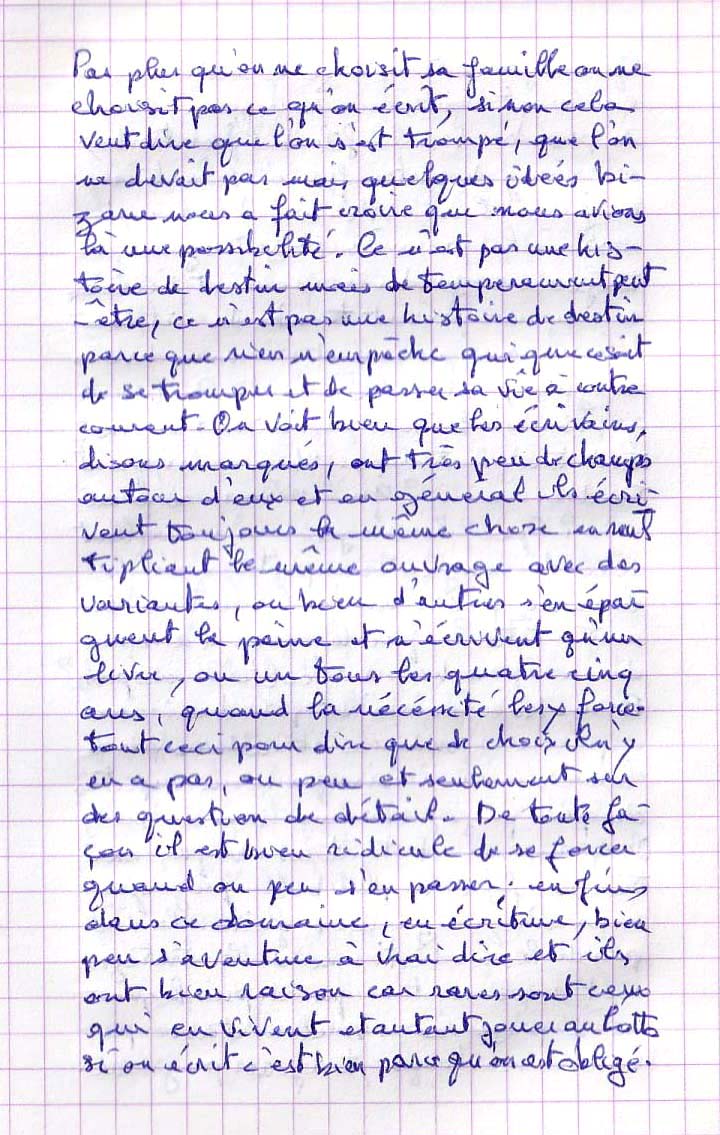 Pas plus qu'on ne choisit sa famille on ne
choisit pas ce qu'on écrit, sinon cela
veut dire que l'on s'est trompé, que l'on
ne devait pas mais quelques idées bi-
zarre nous a fait croire que nous avions
là une possibilité. Ce n'est pas une his-
toire de destin mais de temperament peut
-être, ce n'est pas une histoire de destin
parce que rien n'empêche qui que ce soit
de se tromper et de passer sa vie à contre
courant. On voit bien que les écrivains,
disons marqués, ont très peu de champs
autour d'eux et en général ils écri-
vent toujours la même chose en mul
tipliant le même ouvrage avec des
variantes, ou bien d'autres s'en épar
gnent la peine et n'écrivent qu'un
livre, ou un tous les quatre cinq
ans, quand la nécéssité les y force.
tout ceci pour dire que de choix il n'y
en a pas, ou peu et seulement sur
des question de détail. De toute fa-
çon il est bien ridicule de se forcer
quand on peu s'en passer, enfin
dans ce domaine, en écriture, bien
peu s'aventure à vrai dire et ils
ont bien raison car rares sont ceux
qui en vivent et autant jouer au lotto
si on écrit c'est bien parce qu'on est obligé.